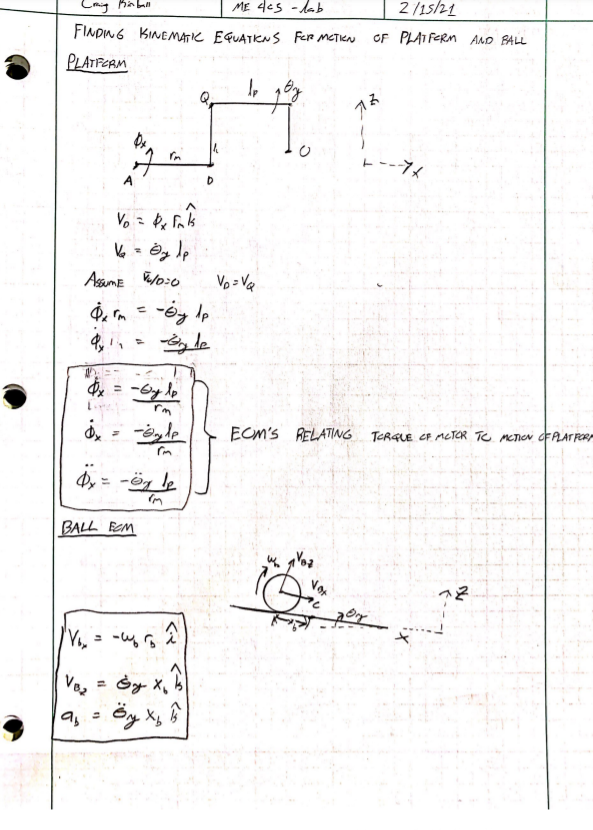 ME 405 - lab
2/15/21
FINDING KINEMATIC EQUATIONS FOR MOTION OF PLATFORM AND BALL
PLATFORM
Q lp θy
Φx rm h O
A D
z
x
V_D = Φx rm k̂
V_Q = θ̇y lp
ASSUME V_Q/D=0 V_D=V_Q
Φ̇x rm = -θ̇y lp
Φ̇x rm = -θ̇y lp
Φx = -θy lp / rm
Φ̇x = -θ̇y lp / rm
Φ̈x = -θ̈y lp / rm
EOM'S RELATING TORQUE OF MOTOR TO MOTION OF PLATFORM
BALL EOM
ωb V_Bz
V_Bx
C
xb θy
z
x
V_bx = -ωb rb î
V_Bz = θ̇y Xb k̂
ab = θ̈y Xb k̂